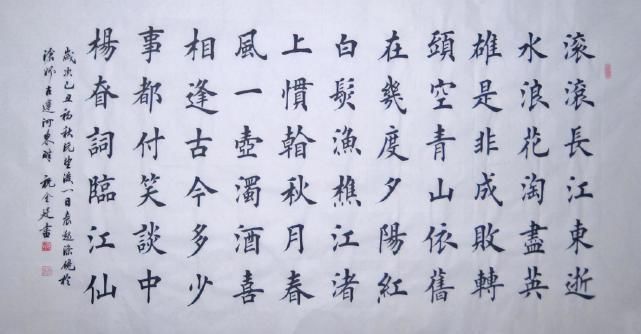 滚滚長江東逝
水浪花淘盡英
雄是非成敗轉
頭空青山依舊
在幾度夕陽紅
白髮漁樵江渚
上慣秋月春
風一壺濁酒喜
相逢古今多少
事都付笑談中
楊昚詞臨江仙
歲次己丑初秋既望後一日於
滄州古運河東畔書